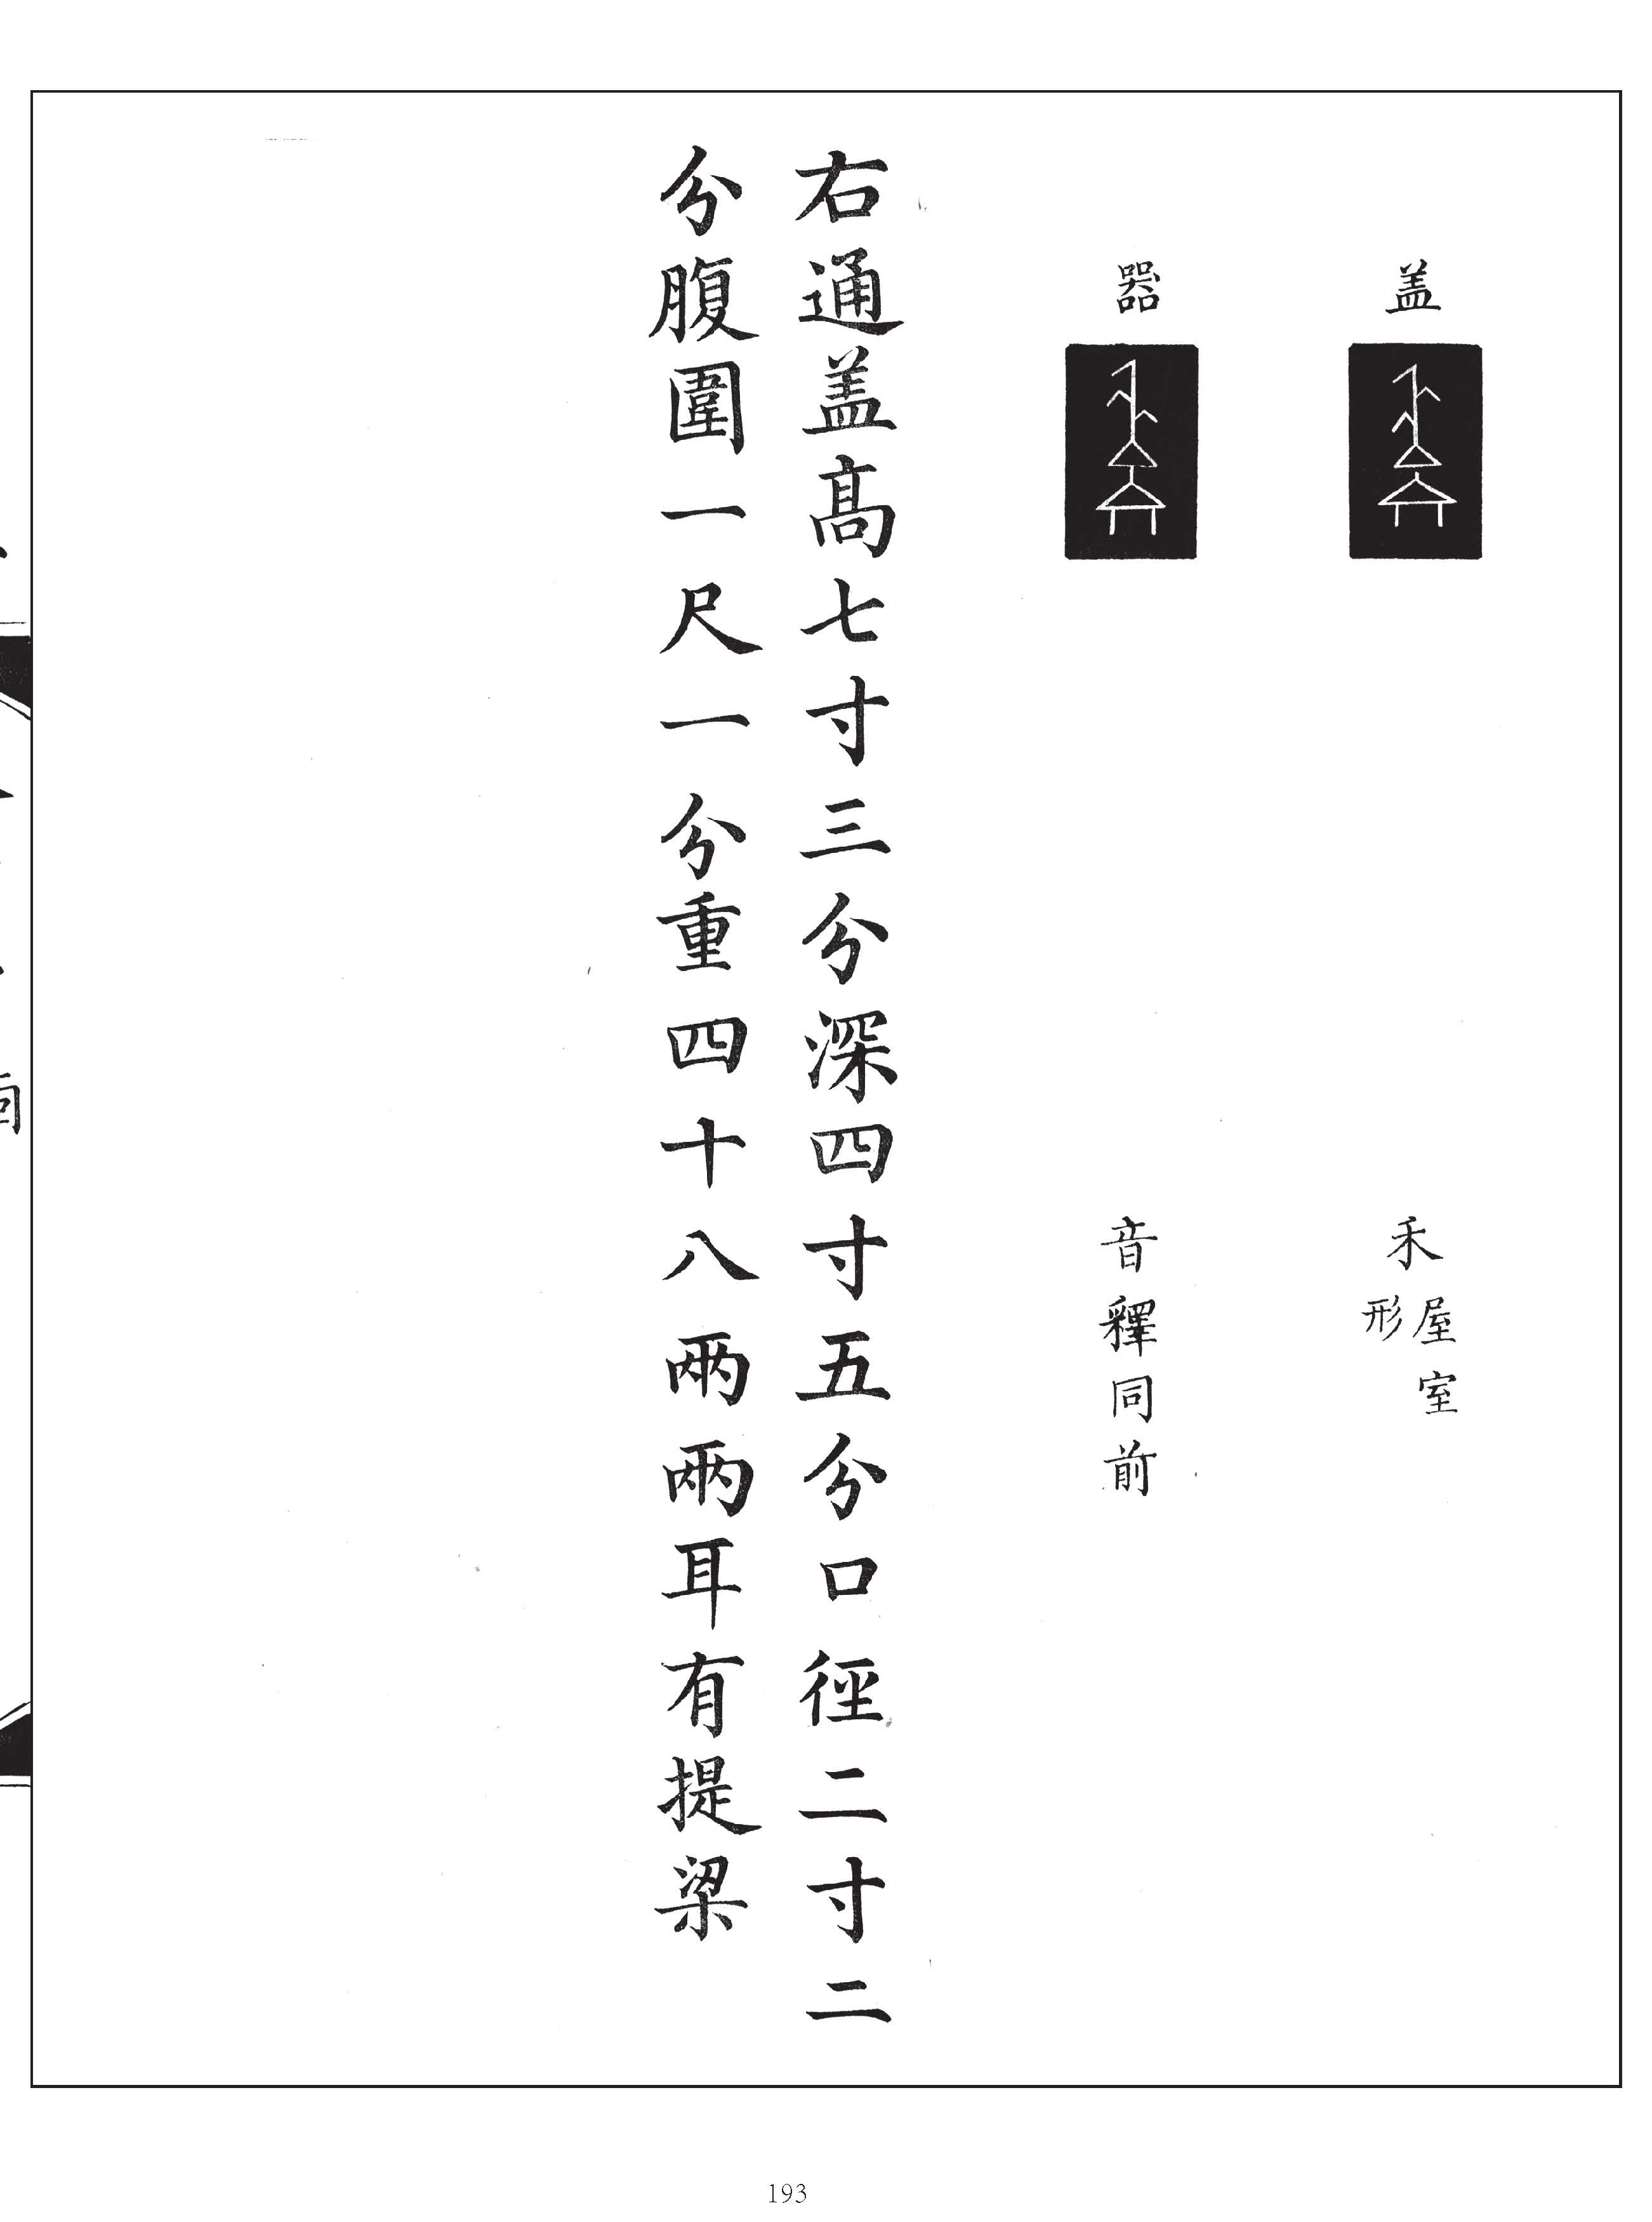 盖
禾屋室形
器
音釋同前
右通盖髙七寸三分深四寸五分口徑二寸二
分腹圍一尺一分重四十八兩兩耳有提梁
193